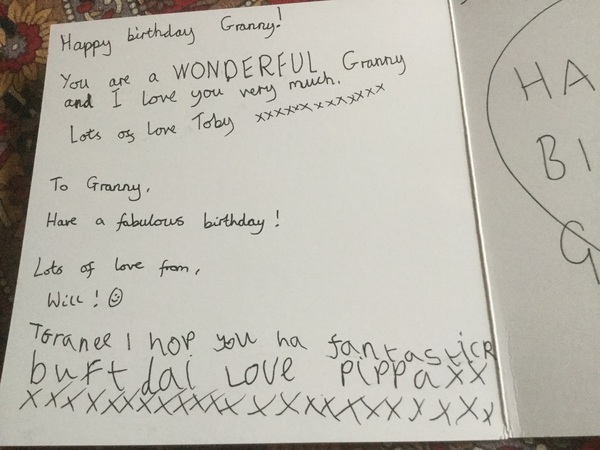 Happy birthday Granny!
You are a WONDERFUL Granny
and I love you very much.
Lots of love Toby xxxxxxxxxxxxx
To Granny,
Have a fabulous birthday!
Lots of love from,
Will! ☺
To Granee I hop you ha fantasticR
burtdai Love Pippa xx
xxxxxxxxxxxxxxxxxxxxxxx
HA
BI
G